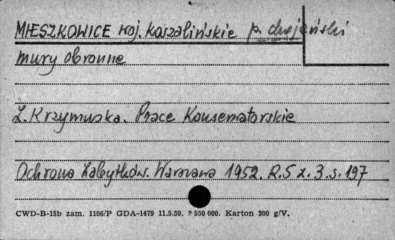 MIESZKOWICE woj. Koszalińskie p. chojeński
mury obronne
Z. Krzymuska. Prace Konserwatorskie
Ochrona Zabytków. Warszawa 1952. R. 5 z. 3. s. 197
CWD-B-15b zam. 1106/P GDA-1479 11.5.59. 550 000. Karton 200 g/V.